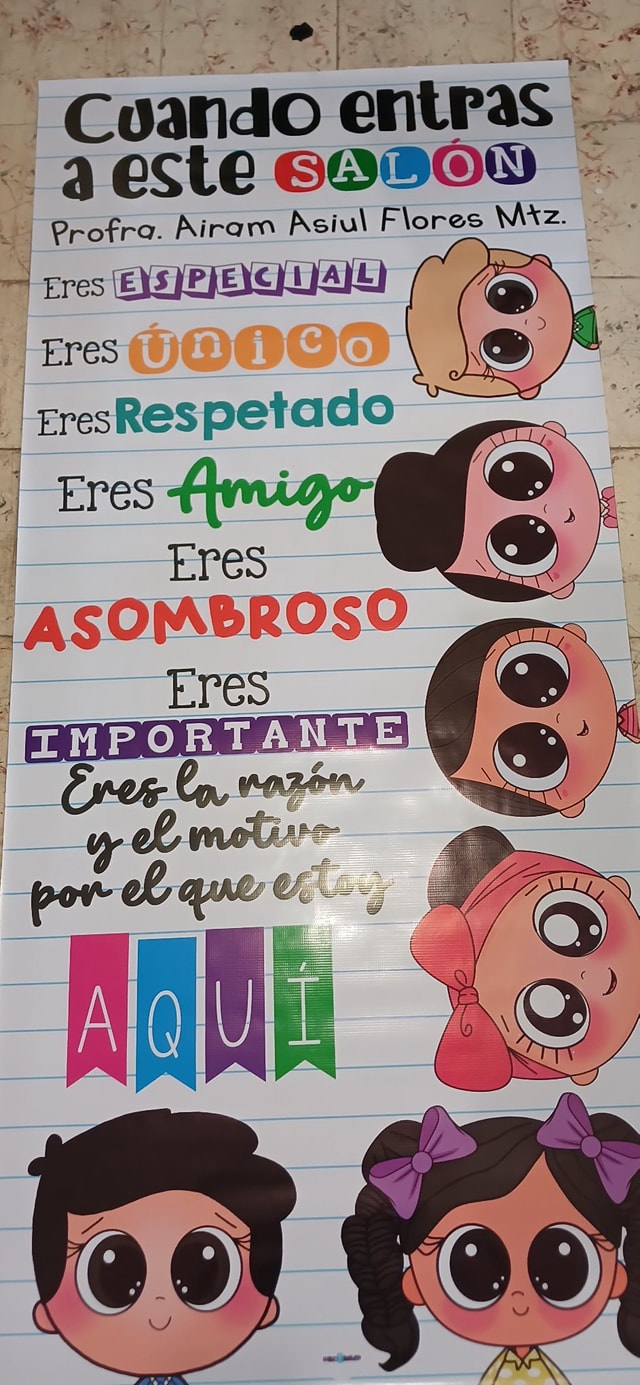 Cuando entras
a este SALÓN
Profra. Airam Asiul Flores Mtz.
Eres ESPECIAL
Eres Único
Eres Respetado
Eres Amigo
Eres
ASOMBROSO
Eres
IMPORTANTE
Eres la razón
y el motivo
por el que estoy
AQUÍ